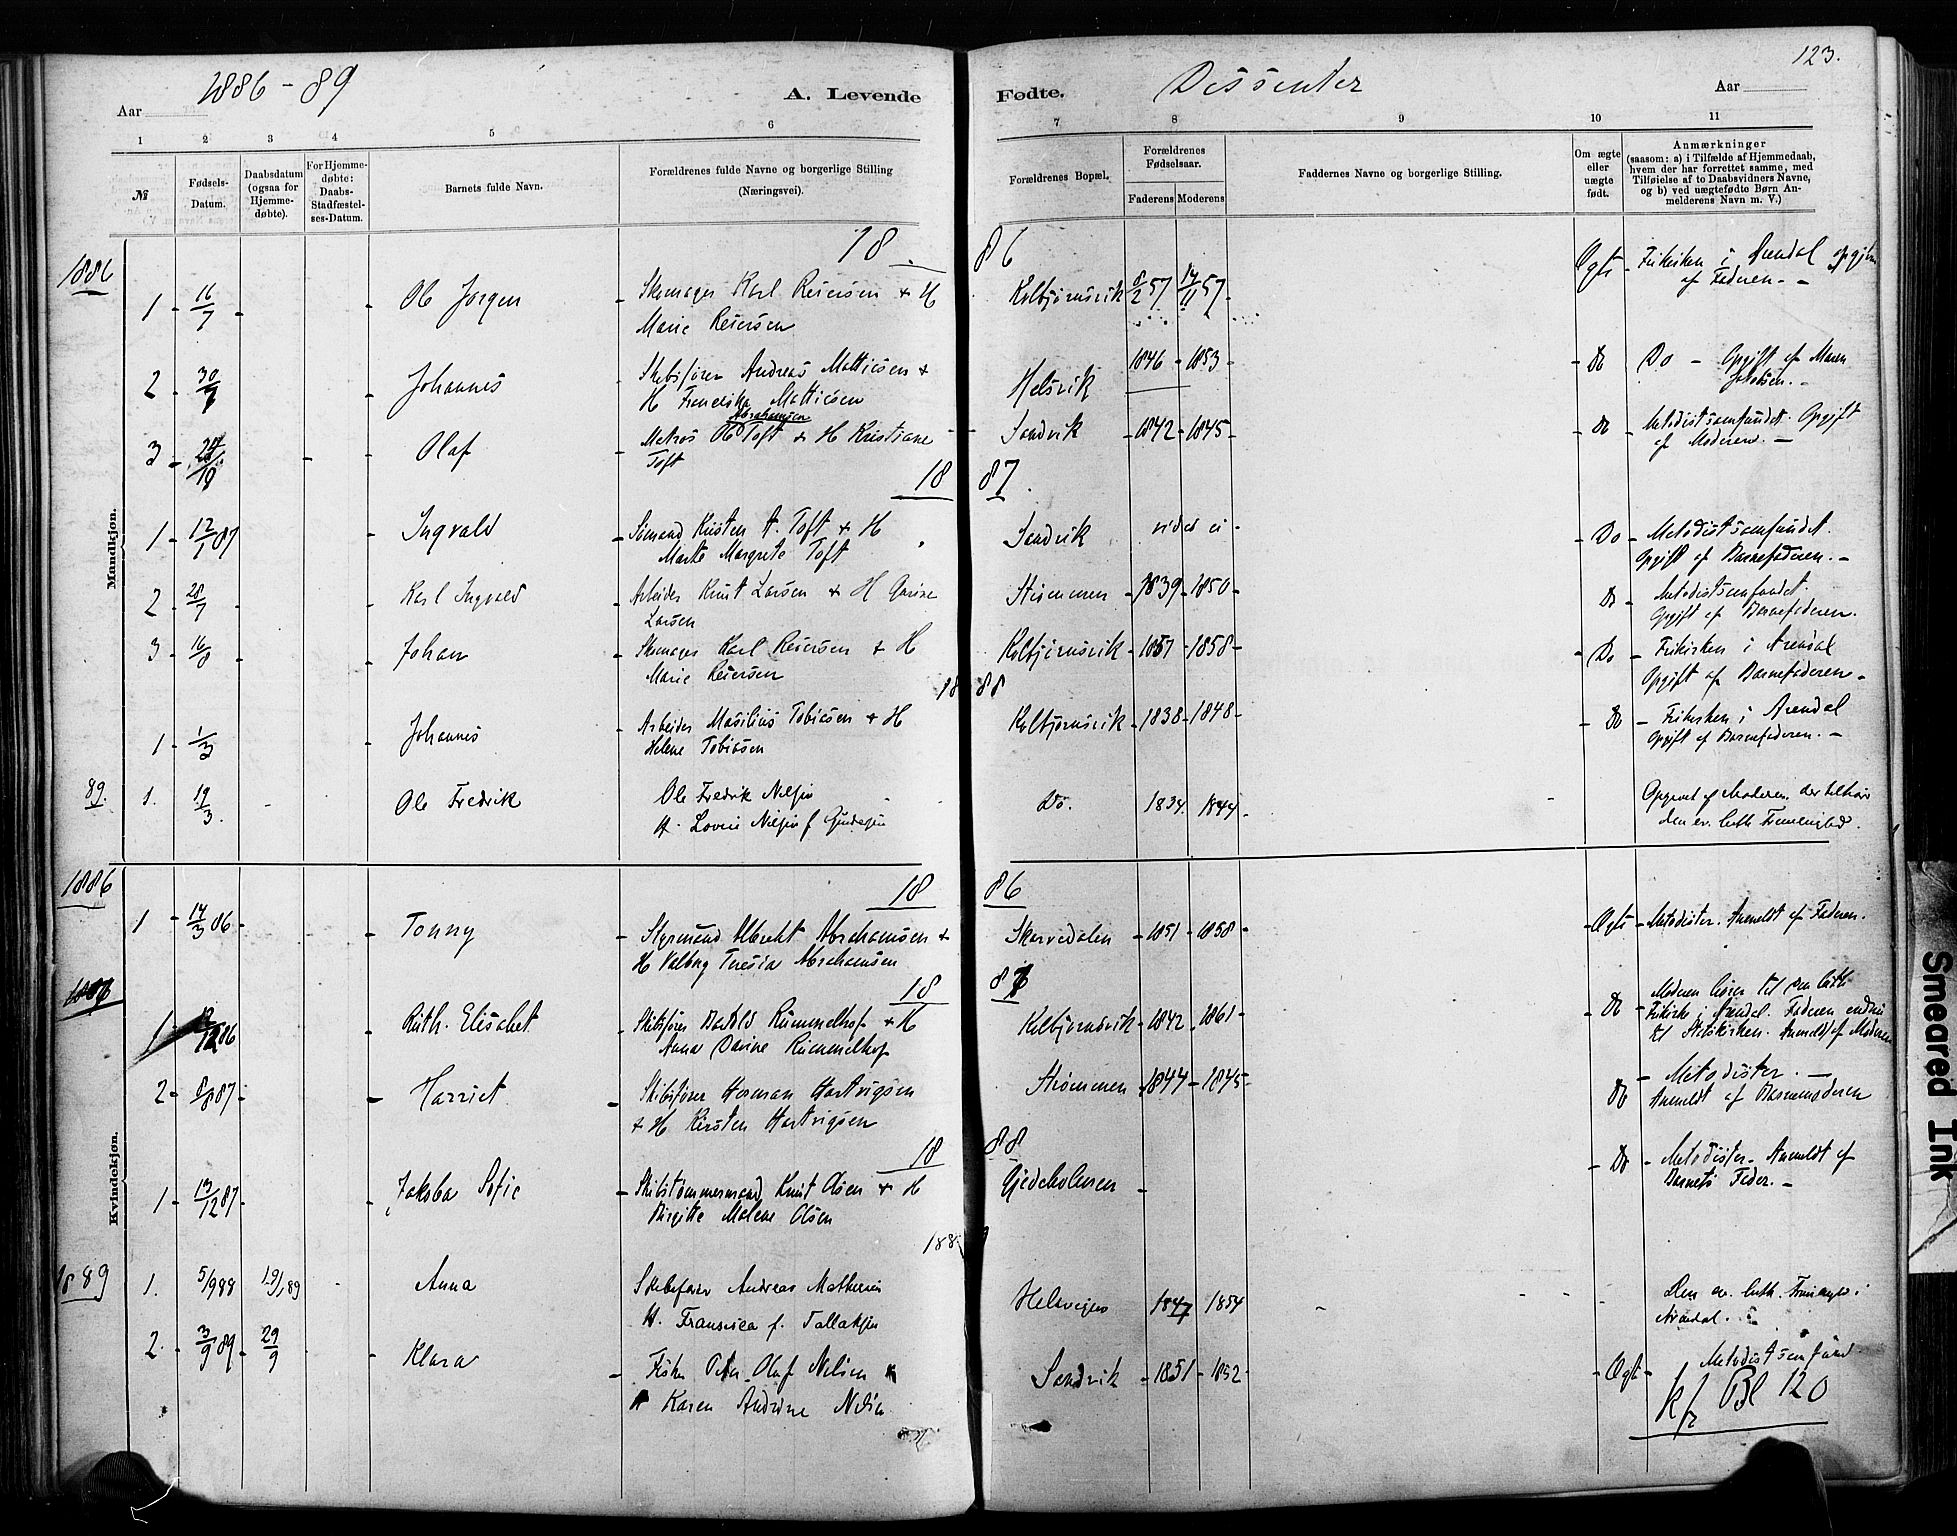 123.
1886 - 89
Dissenter
Aar
A. Levende Fødte.
Aar
1 2 3 4 5 6 7 8 9 10 11
№
Fødsels-Datum.
Daabsdatum (ogsaa for Hjemme-døbte).
For Hjemme-døbte: Daabs-Stadfæstel-ses-Datum.
Barnets fulde Navn.
Forældrenes fulde Navne og borgerlige Stilling (Næringsvei).
Forældrenes Bopæl.
Forældrenes Fødselsaar.
Faderens Moderens
Faddernes Navne og borgerlige Stilling.
Om ægte eller uægte født.
Anmærkninger (saasom: a) i Tilfælde af Hjemmedaab, hvem der har forrettet samme, med Tilføielse af to Daabsvidners Navne, og b) ved uægtefødte Børn An-melderens Navn m. V.)
Mandkjøn.
1886
18 86
1 16/7 Ole Jørgen Skomager Karl Reiersen + H Kolbjørnsvik 8/2 57 14/11 57 Ægte Frikirken i Arendal opgiven
Marie Reiersen af Faderen
2 30/9 Johannes Skibsfører Andreas Mathiesen + Helsvik 1846 1853 Do Do Opgift af Maren
H Franciska Mathiesen Jakobsen.
Abrahamsen
3 Olaf Matros O Toft + H Kristiane Sandvik 1842 1845 Do Metodistsamfundet. Opgift
Toft af Moderen.
18 87
1 12/1 87 Ingvald Sømand Kristen A. Toft + H Sandvik vides ei Do Metodistsamfundet.
Marte Margrete Toft Opgift af Barnefaderen.
2 28/7 Karl Ingvald Arbeider Knut Larsen + H Strømmen 1839 1850 Do Metodistsamfundet.
Larsen Opgift af Barnefaderen.
3 16/8 Johan Skomager Karl Reiersen + H Kolbjørnsvik 1857 1858 Do Frikirken i Arendal
Marie Reiersen Opgift af Barnefaderen
18 88
1 1/3 Johannes Arbeider Masilius Tobiasen + H Kolbjørnsvik 1838 1848 Do Frikirken i Arendal
Helene Tobiasen Opgift af Barnefaderen.
89. 1. 19/3. Ole Fredrik Ole Fredrik Nilsen Do. 1834. 1844 Opgivet af Moderen, der tilhører
H. Lovise Nilsen f. Gundersen den ev. luth. Frimenighed.
Kvindekjøn.
1886
18 86
1 14/3 86 Tonny Styrmand Albrekt Abrahamsen + Skarvedalen 1851 1858 Ægte Metodister. Anmeldt af Faderen.
H Valborg Teresia Abrahamsen
18 87
1 12 86 Ruth Elisabet Skibsfører Bertold Rummelhof + H Kolbjørnsvik 1842 1861 Do Moderen hører til den luth.
Anna Davine Rummelhof Frikirke i Arendal. Faderen endnu
til Statskirken. Anmeldt af Moderen
2 8/8 87 Harriet Skibsfører Herman Hartvigsen Strømmen 1844 1845 Do Metodister.
+ H Kirsten Hartvigsen Anmeldt af Barnemoderen
18 88
1 13/12 87 Jakoba Sofie Skibstømmermand Knut Olsen + H Gjedeholmen Do Metodister. Anmeldt af
Birgitte Malene Olsen Barnets Fader.
1889
1. 5/9 88 19/1 89 Anna Skibsfører Andreas Mathiesen Helsvigen 1847 1854 Den ev. luth. Frimenighed i
H. Fransisca f. Tallaksen Arendal.
2. 3/9 89 29/9 Klara Fisker Peter Olaf Nilsen Sandvik 1851 1852 Ægte Metodistsamfund
H Karen Andrine Nilsen
kfr Bl 120
Smeared Ink